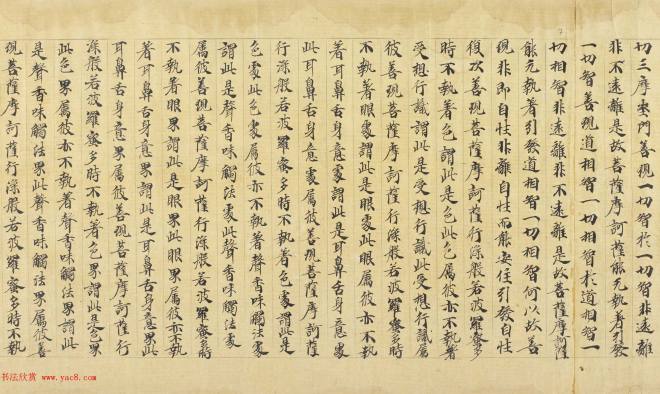 切三摩地門善現一切智於一切智非遠離
非不遠離是故菩薩摩訶薩能无執著引發
一切智善現道相智一切相智於道相智一
切相智非遠離非不遠離是故菩薩摩訶薩
能无執著引發道相智一切相智何以故善
現非即自性非離自性而能安住引發自性
復次善現菩薩摩訶薩行深般若波羅蜜多
時不執著色謂此是色此色屬彼亦不執著
受想行識謂此是受想行識此受想行識屬
彼善現菩薩摩訶薩行深般若波羅蜜多時
不執著眼處謂此是眼處此眼處屬彼亦不執
著耳鼻舌身意處謂此是耳鼻舌身意處
此耳鼻舌身意處屬彼善現菩薩摩訶薩
行深般若波羅蜜多時不執著色處謂此是
色處此色處屬彼亦不執著聲香味觸法處
謂此是聲香味觸法處此聲香味觸法處
屬彼善現菩薩摩訶薩行深般若波羅蜜多時
不執著眼界謂此是眼界此眼界屬彼亦不執
著耳鼻舌身意界謂此是耳鼻舌身意界此
耳鼻舌身意界屬彼善現菩薩摩訶薩行
深般若波羅蜜多時不執著色界謂此是色界
此色界屬彼亦不執著聲香味觸法界謂此
是聲香味觸法界此聲香味觸法界屬彼善
現菩薩摩訶薩行深般若波羅蜜多時不執
书法欣赏 www.yac8.com